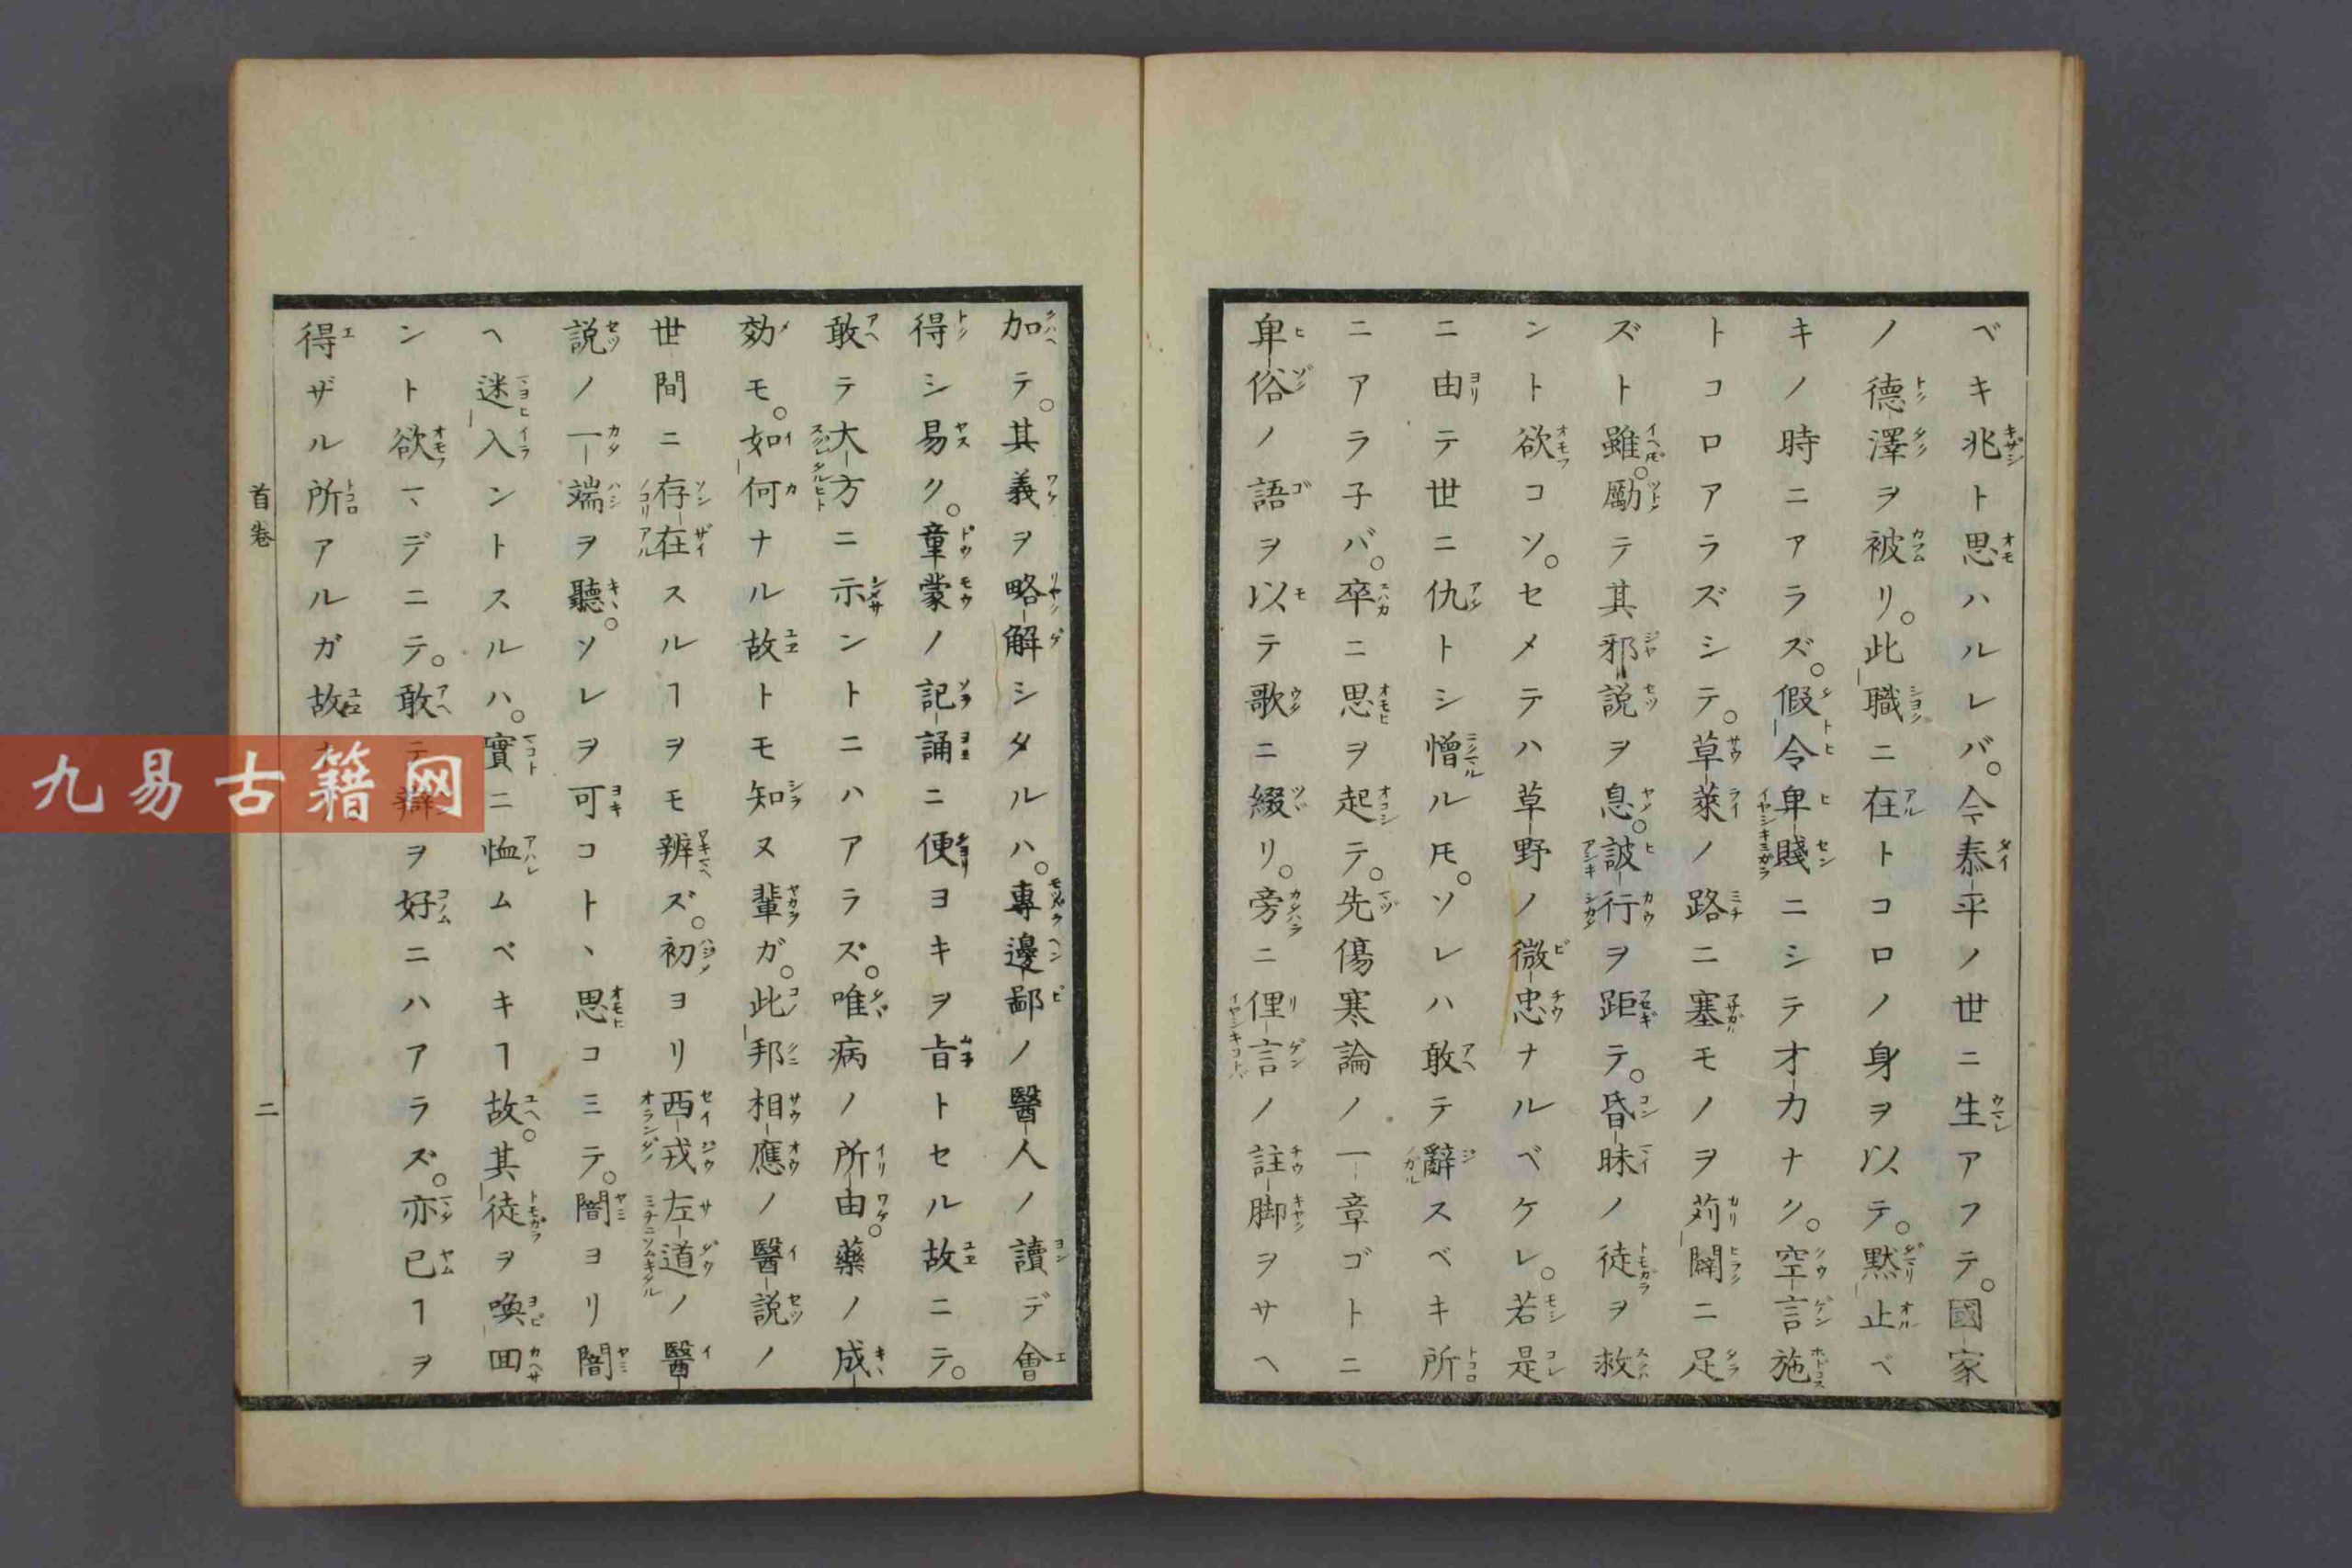 ベキ兆ト思ハルレバ。今泰平ノ世ニ生アフテ。國家
ノ德澤ヲ被リ。此職ニ在トコロノ身ヲ以テ。黙止ベ
キノ時ニアラズ。假令卑賤ニシテ才力ナク。空言施
トコロアラズシテ。草萊ノ路ニ塞モノヲ苅闢ニ足
ズト雖。勵テ其邪說ヲ息。詖行ヲ距テ。昏昧ノ徒ヲ救
ント欲コソ。セメテハ草野ノ微忠ナルベケレ。若是
ニ由テ世ニ仇トシ憎ル𪜈。ソレハ敢テ辭スベキ所
ニアラ子バ。卒ニ思ヲ起テ。先傷寒論ノ一章ゴトニ
卑俗ノ語ヲ以テ歌ニ綴リ。旁ニ俚言ノ註脚ヲサヘ
加テ。其義ヲ略解シタルハ。專邊鄙ノ醫人ノ讀デ會
得シ易ク。童蒙ノ記誦ニ便ヨキヲ旨トセル故ニテ。
敢テ大方ニ示ントニハアラズ。唯病ノ所由。藥ノ成
効モ。如何ナル故トモ知ヌ輩ガ。此邦相應ノ醫説ノ
世間ニ存在スルヿヲモ辨ズ。初ヨリ西戎左道ノ醫
説ノ一端ヲ聽。ソレヲ可コトヽ思コミテ。闇ヨリ闇
ヘ迷入ントスルハ。實ニ恤ムベキヿ故。其徒ヲ喚回
ント欲マデニテ。敢テ辯ヲ好ニハアラズ。亦已ヿヲ
得ザル所アルガ故
首卷
二
九易古籍网